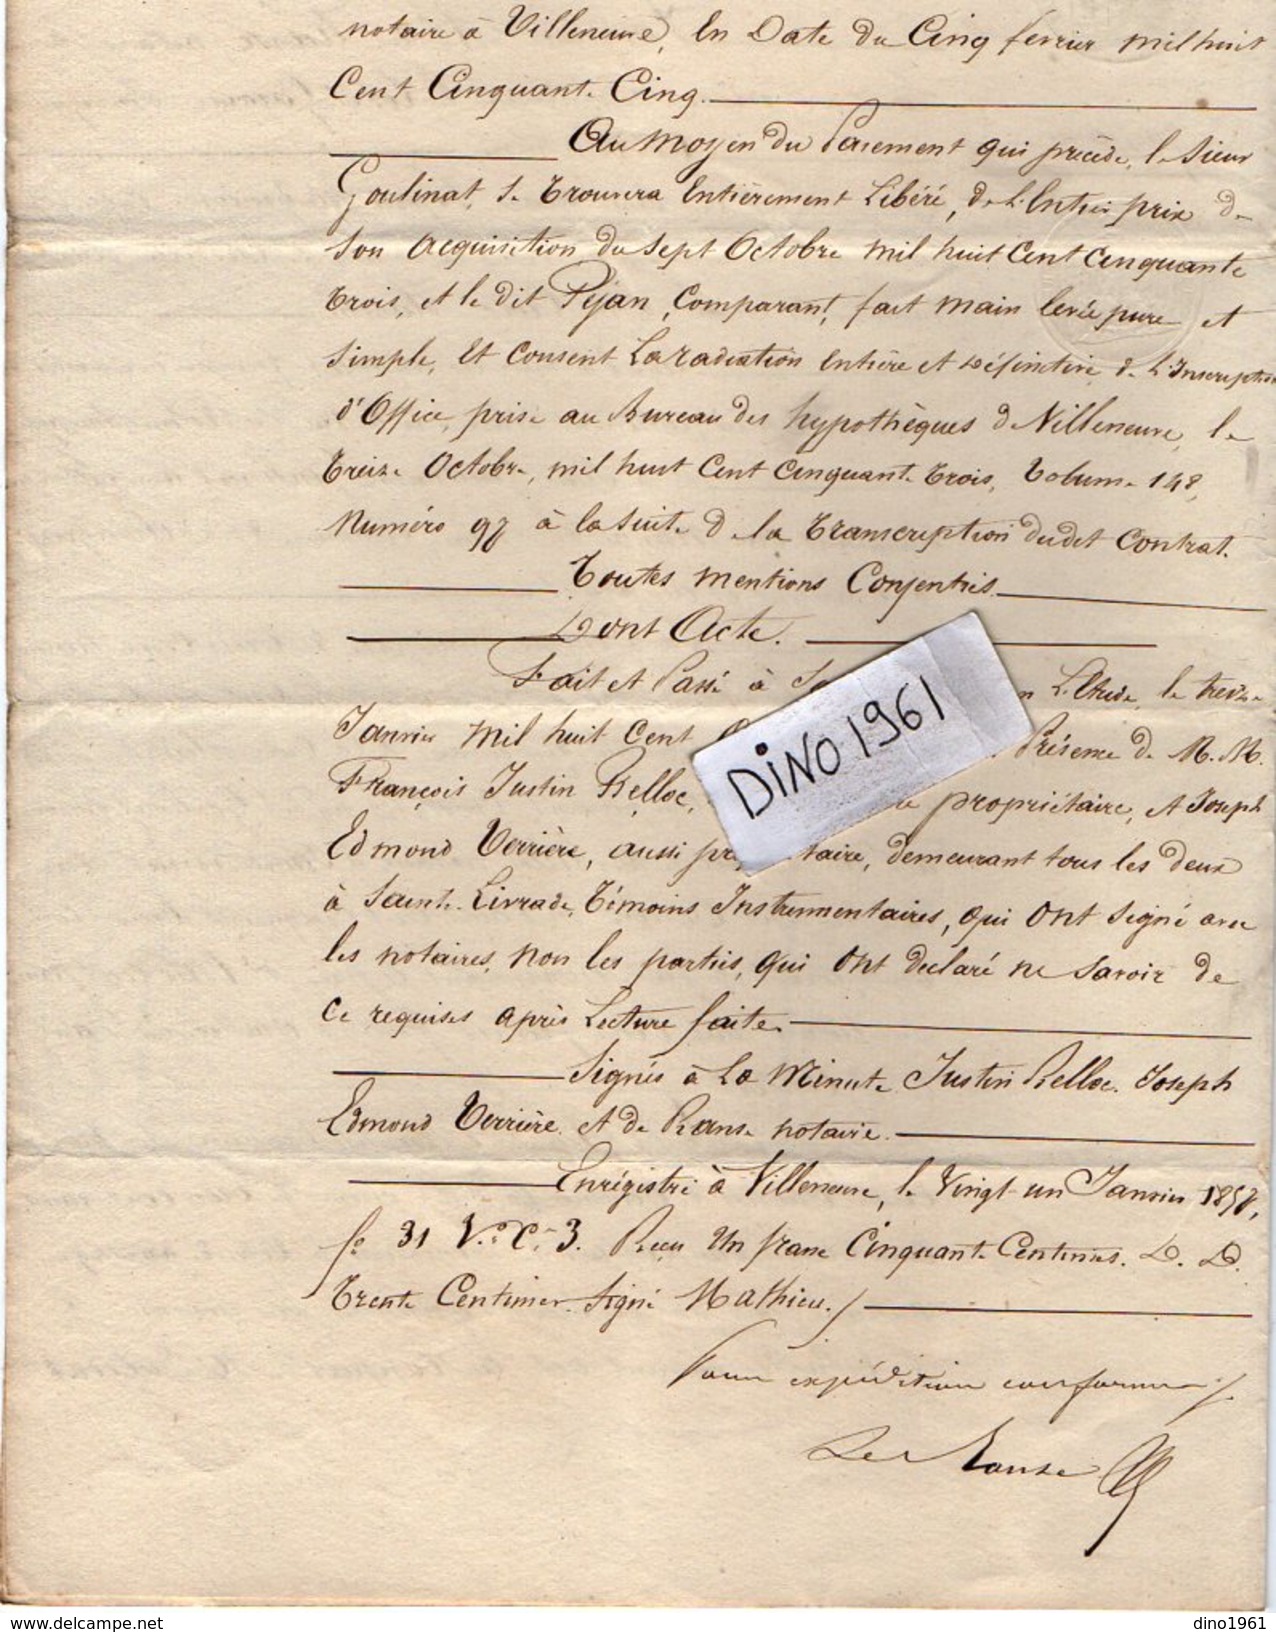 notaire à Villeneuve, En Date du Cinq février mil huit
Cent Cinquant-Cinq.
Au moyen du Paiement qui précède, le Sieur
Goulinat, se trouvera Entièrement Libéré, de L'Entier prix de
Son acquisition du Sept Octobre mil huit Cent Cinquante
trois, et le dit Péjan, Comparant, fait main levée pure et
Simple, Et Consent La radiation Entière et définitive de L'Inscription
d'Office, prise au Bureau des hypothèques de Villeneuve, le
treize Octobre, mil huit Cent Cinquante trois, Volume 148,
Numéro 97 à la Suite de la transcription dudit Contrat.
Toutes mentions Consenties.
Dont Acte.
Fait et Passé à L'Etude, le treize
Janvier mil huit Cent Présence de M.M.
François Justin Belloc, propriétaire, et Joseph
Edmond Verrière, aussi propriétaire, demeurant tous les deux
à Sainte-Livrade, témoins Instrumentaires, qui ont Signé avec
les notaires, non les parties, qui ont déclaré ne savoir de
Ce requises après Lecture faite.
Signés à La Minute Justin Belloc. Joseph
Edmond Verrière. et de Ranse notaire.
Enrégistré à Villeneuve, le Vingt-un Janvier 1857,
fo 31 Vo C. 3. Reçu Un franc Cinquante Centimes. D. D.
trente Centimes. Signé Mathieu.
Pour expédition conforme
De Ranse
DINO 1961
www.delcampe.net
dino1961